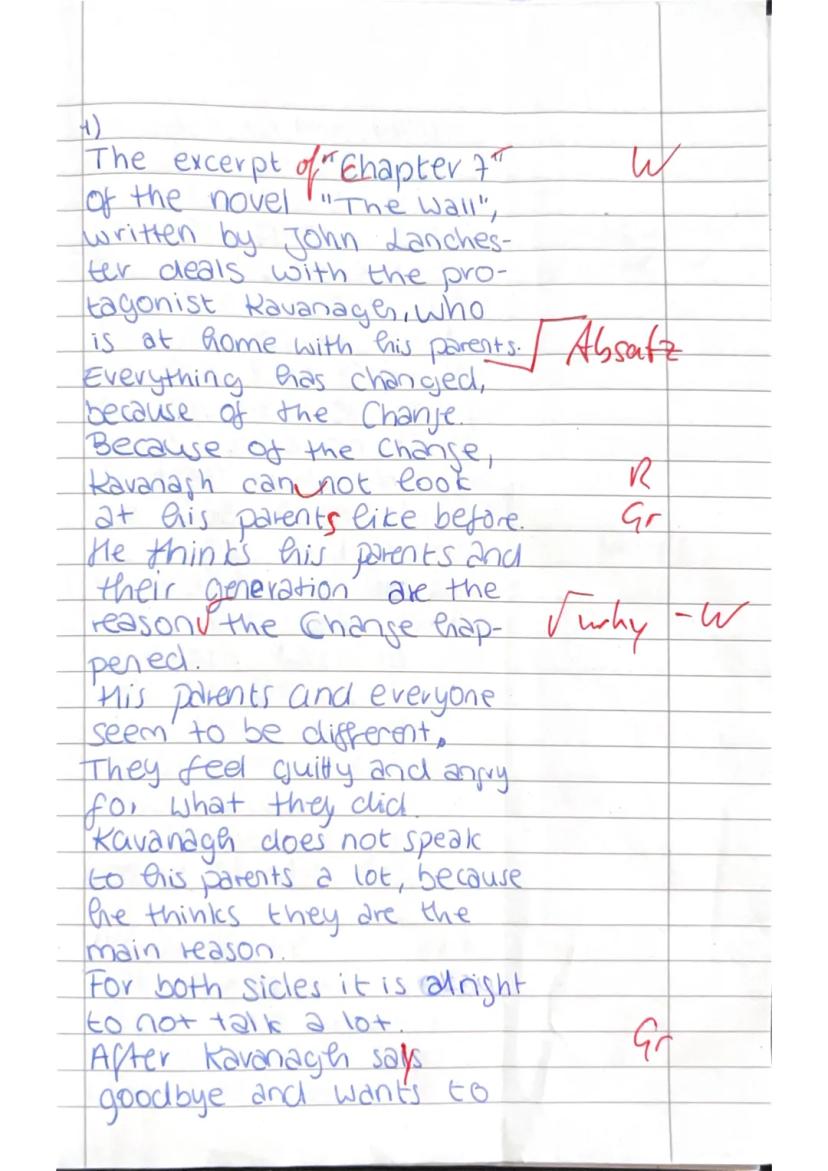 1)
The excerpt of "Chapter 7" W
of the novel "The Wall",
written by John Lanches-
ter deals with the pro-
tagonist Kavanagh, who
is at home with his parents. Absatz
Everything has changed,
because of the Change.
Because of the Change,
Kavanagh cannot look R
at his parents like before. Gr
He thinks his parents and
their generation are the
reason √ the Change hap- √ why - W
pened.
His parents and everyone
seem to be different.
They feel guilty and angry
for what they did.
Kavanagh does not speak
to his parents a lot, because
he thinks they are the
main reason.
For both sides it is alright
to not talk a lot.
After Kavanagh says Gr
goodbye and wants to